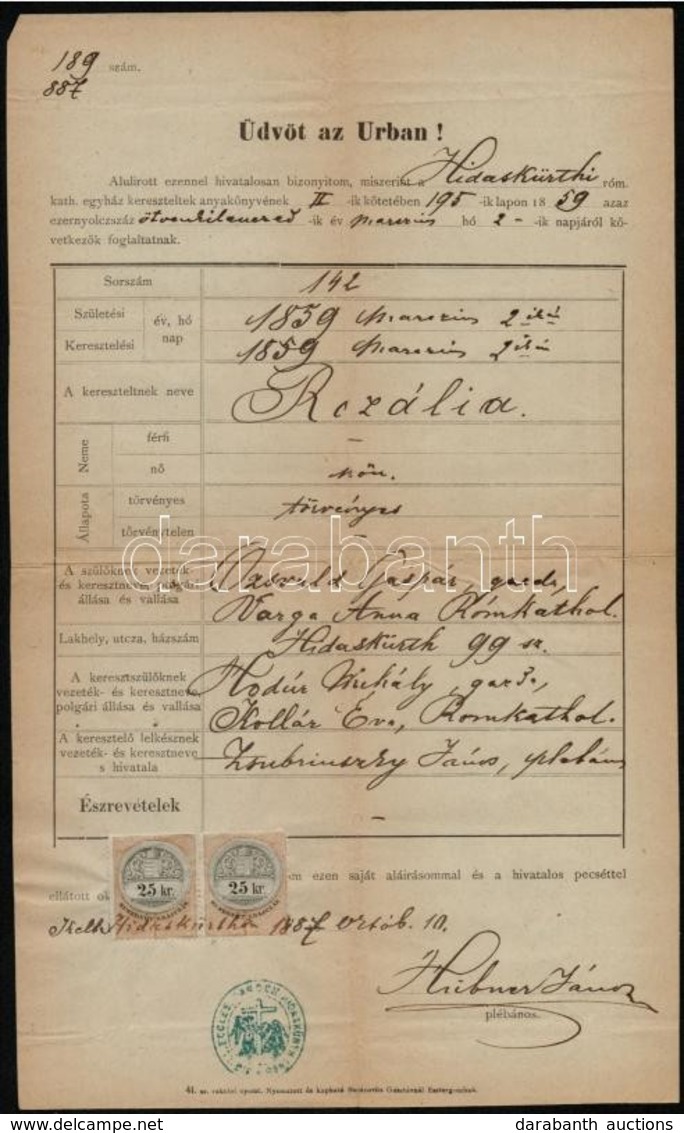 189 szám.
887
Üdvöt az Urban !
Alulirott ezennel hivatalosan bizonyitom, miszerint a Hidaskürthi róm.
kath. egyház kereszteltek anyakönyvének II -ik kötetében 195 -ik lapon 18 59 azaz
ezernyolczszáz ötvenkilenczed -ik év marczius hó 2 - -ik napjáról kö-
vetkezők foglaltatnak.
Sorszám 142
Születési év, hó nap 1859 Marczius 2
Keresztelési 1859 Marczius 2
A kereszteltnek neve Rozália.
Neme férfi -
nő nőn.
Állapota törvényes törvényes
törvénytelen -
A szülőknek vezeték- Ozsvald Gáspár, gazda,
és keresztneve, polgári
állása és vallása Varga Anna Rómkathol.
Lakhely, utcza, házszám Hidaskürth 99 sz.
A keresztszülőknek Hodúr Mihály, gazda,
vezeték- és keresztneve,
polgári állása és vallása Kollár Éva, Romkathol.
A keresztelő lelkésznek
vezeték- és keresztneve János, plebános
s hivatala
Észrevételek -
25 kr. 25 kr.
em ezen saját aláirásommal és a hivatalos pecséttel
ellátott ok
Kelt Hidaskürthön 1887 Octób. 10.
Hübner János
plébános.
darabanth
darabanth auctions